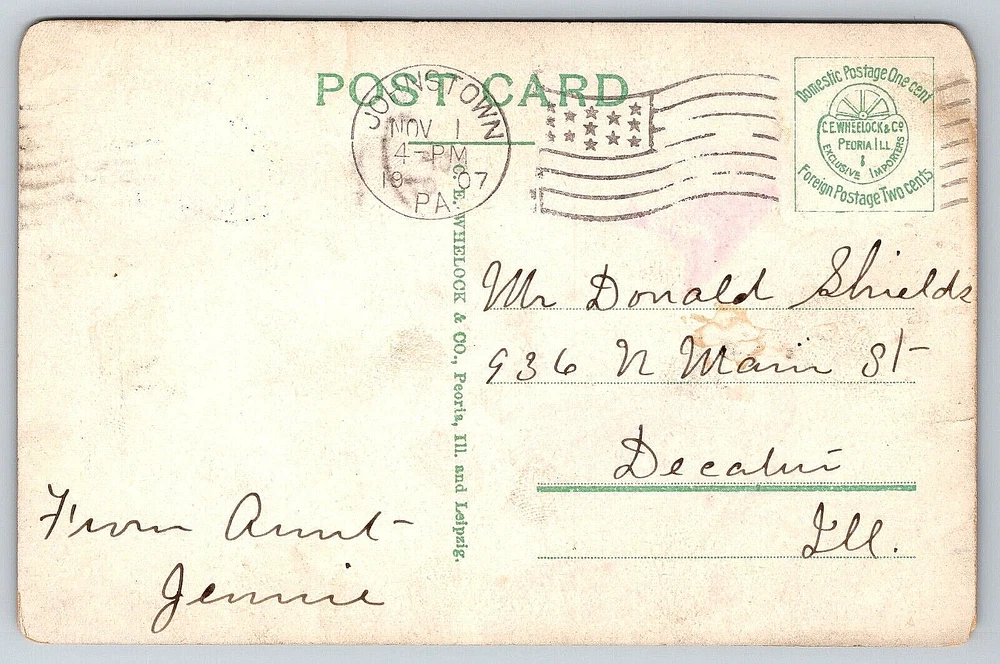 POST CARD
JOHNSTOWN
NOV 1
4-PM
19 07
PA.
Domestic Postage One cent
C.E. WHEELOCK & Co
PEORIA ILL.
EXCLUSIVE IMPORTERS
Foreign Postage Two cents
C. E. WHELOCK & CO., Peoria, Ill. and Leipzig.
Mr Donald Shields
936 N Main St
Decatur
Ill.
From Aunt
Jennie